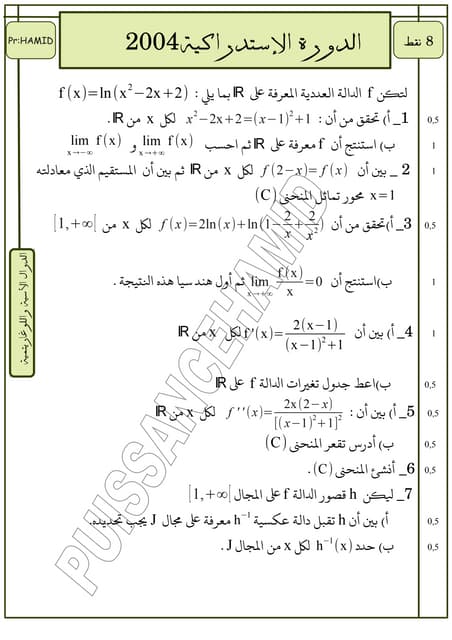 8 نقط
الدورة الإستدراكية2004
Pr:HAMID
لتكن f الدالة العددية المعرفة على IR بما يلي : f(x)=ln(x²−2x+2)
1_ أ) تحقق من أن : x²−2x+2=(x−1)²+1 لكل x من IR. 0,5
ب) استنتج أن f معرفة على IR ثم احسب lim f(x) x→+∞ و lim f(x) x→−∞ 1
2 _ بين أن f(2−x)=f(x) لكل x من IR ثم بين أن المستقيم الذي معادلته 1
x=1 محور تماثل المنحنى (C)
3_ أ)تحقق من أن f(x)=2ln(x)+ln(1−2/x+2/x²) لكل x من [1,+∞[ 0,5
ب)استنتج أن lim f(x)/x=0 x→+∞ ثم أول هندسيا هذه النتيجة . 1
4_ أ) بين أن f'(x)=2(x−1)/((x−1)²+1) لكل x من IR 1
ب)اعط جدول تغيرات الدالة f على IR 0,5
5_ أ) بين أن : f''(x)=2x(2−x)/[(x−1)²+1]² لكل x من IR 0,5
ب) أدرس تقعر المنحنى (C) 0,5
6_ أنشئ المنحنى (C). 0,5
7_ ليكن h قصور الدالة f على المجال [1,+∞[
أ) بين أن h تقبل دالة عكسية h⁻¹ معرفة على مجال J يجب تحديده. 0,5
ب) حدد h⁻¹(x) لكل x من المجال J. 0,5
الدوال الأسية واللوغاريتمية
PUISSANCEHAMID